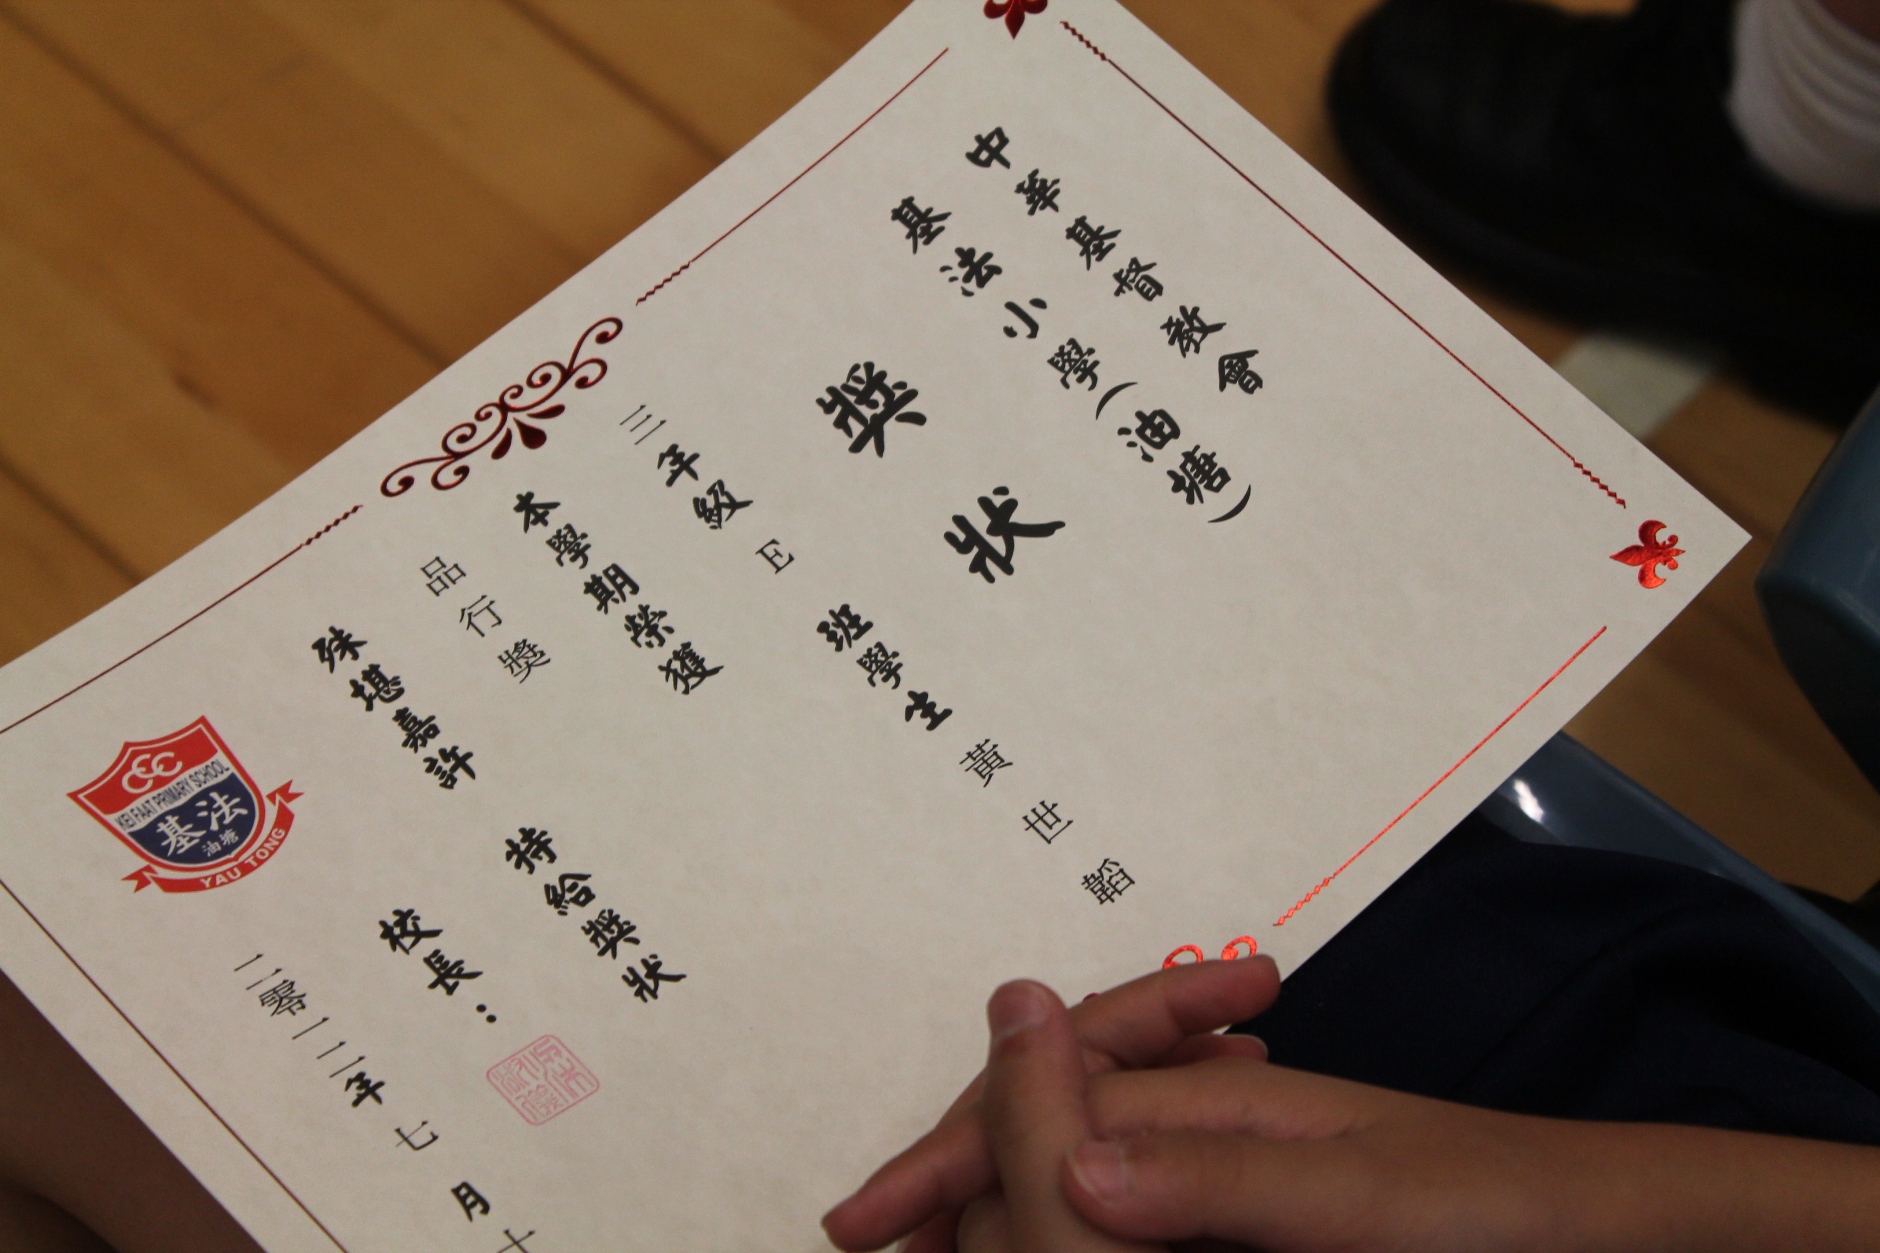 中華基督教會
基法小學(油塘)
獎狀
三年級 E 班學生 黃世韜
本學期榮獲
品行獎
殊堪嘉許 特給獎狀
校長:
二零一二年七月十
CCC
KEI FAAT PRIMARY SCHOOL
基法
油塘
YAU TONG